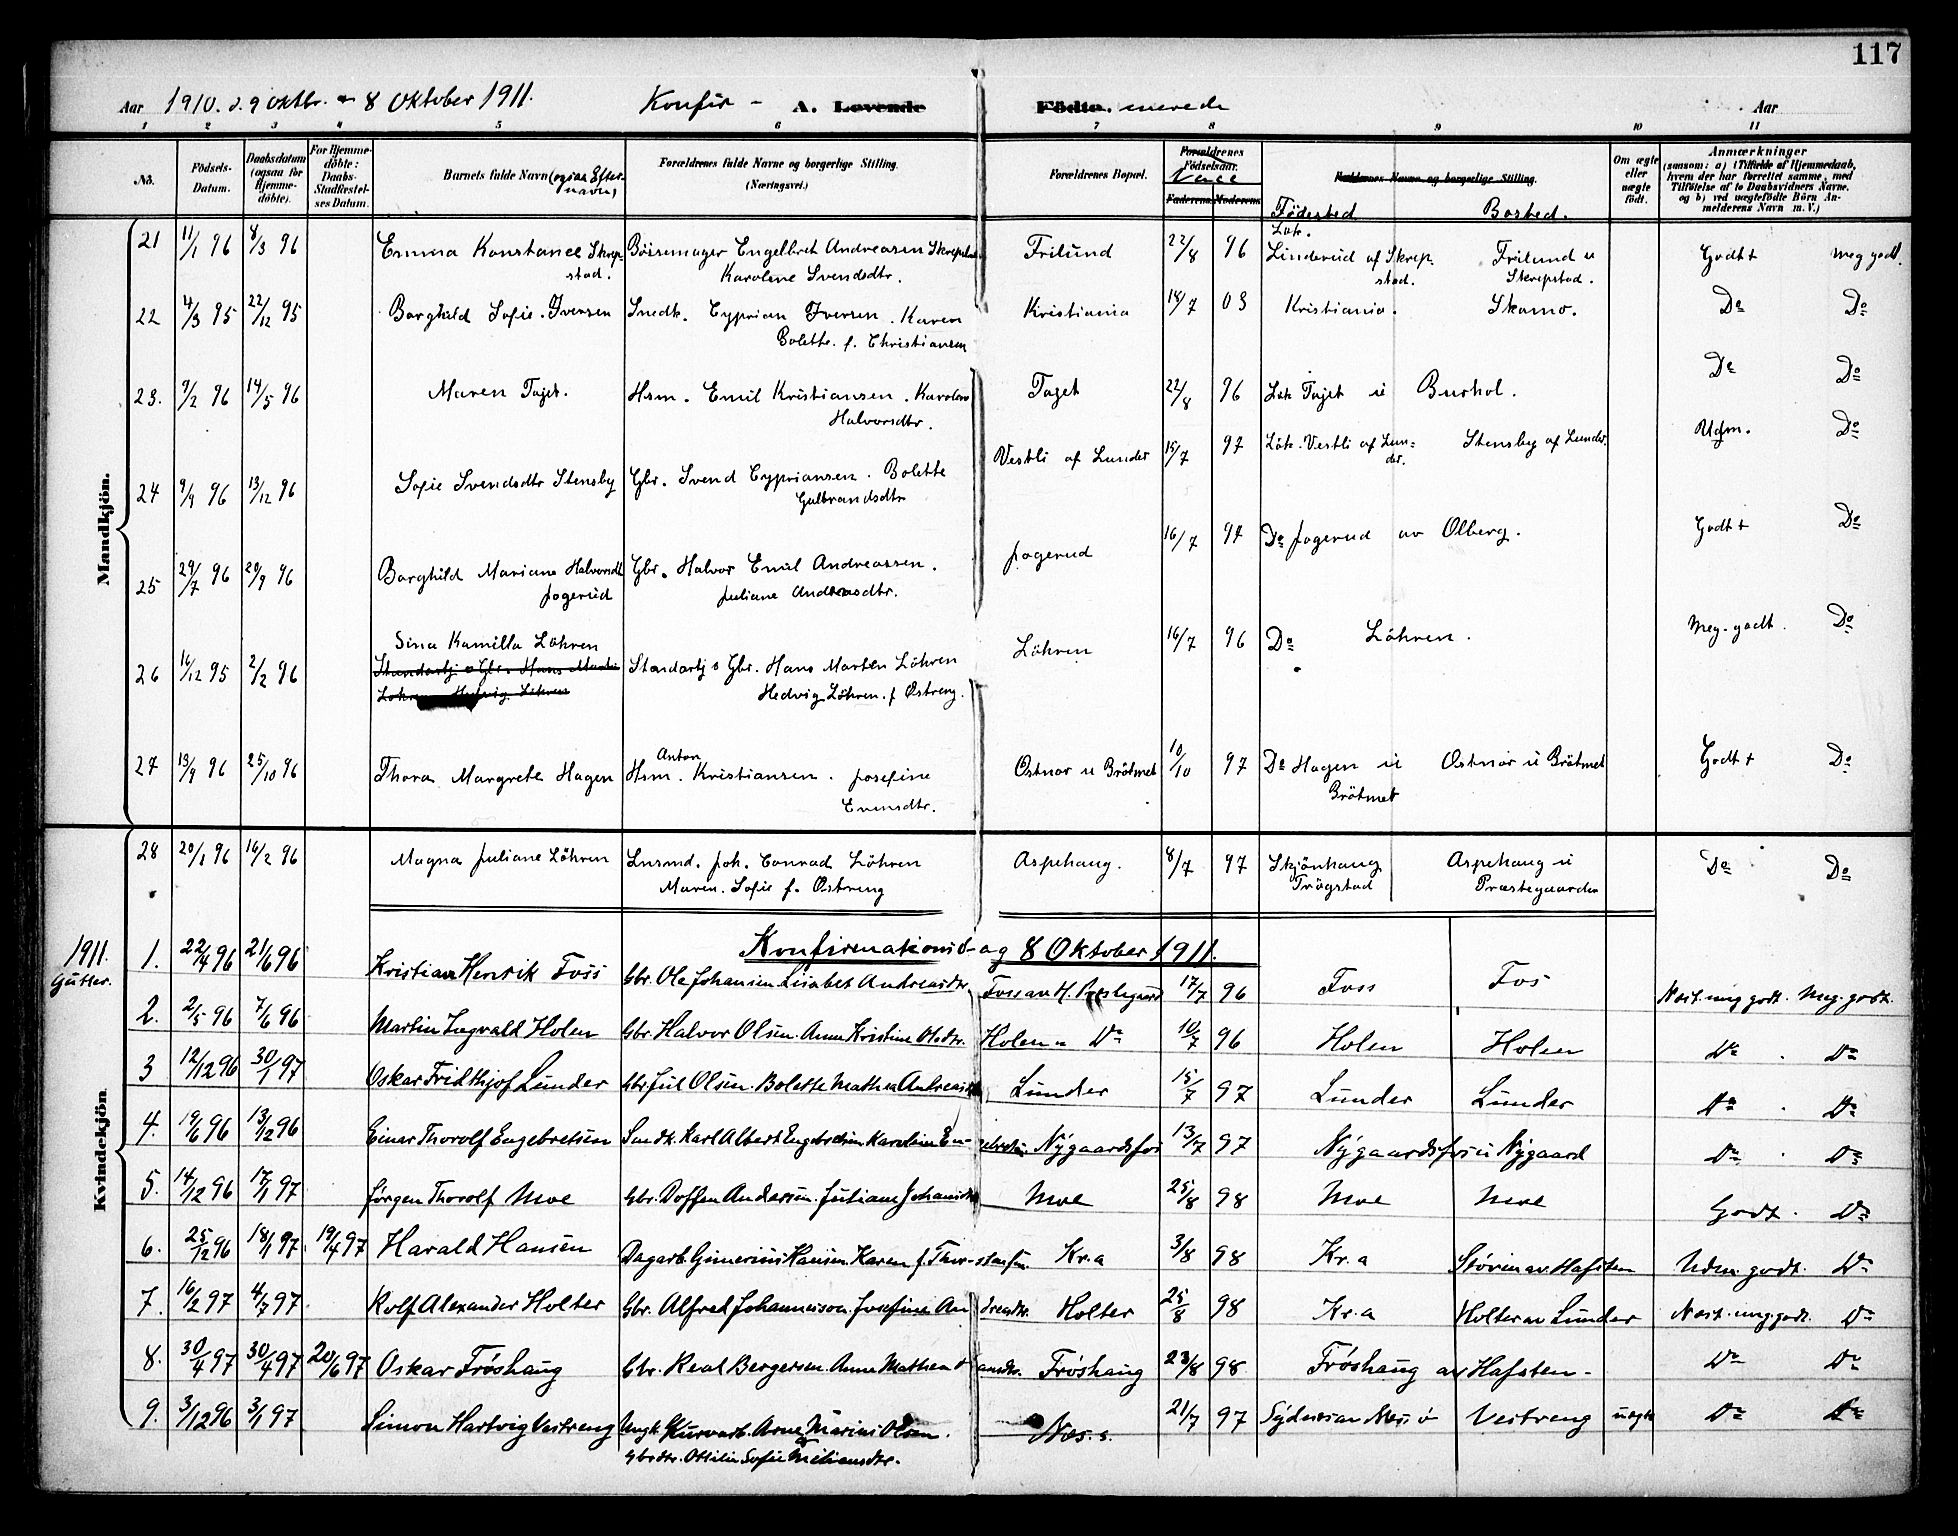 117
Aar 1910. d. 9 oktbr. 8 Oktober 1911. Konfir - A. Levende Födte. merede Aar
1 2 3 4 5 6 7 8 9 10 11
No. Födsels-Datum. Daabsdatum (ogsaa for Hjemme-döbte). For Hjemme-döbte: Daabs-Stadfæstel-ses Datum. Barnets fulde Navn (ogsaa Efter-navn) Forældrenes fulde Navne og borgerlige Stilling. (Næringsvei.) Forældrenes Bopæl. Forældrenes Födselsaar. Vacc Faderens Moderens Faddernes Navne og borgerlige Stilling. Födested Bosted. Om ægte eller uægte födt. Anmærkninger (saasom: a) i Tilfælde af Hjemmedaab, hvem der har forrettet samme, med Tilföielse af to Daabsvidners Navne. og b) ved uægtefödte Börn An-melderens Navn m. V.)
Mandkjön.
21 11/1 96 8/3 96 Emma Konstance Skrep- Börsemager Engelbret Andreassen Skrepstad Frilund 22/8 96 Löt. Linderud af Skrep- Frilund u Godt + meg godt.
stad. Karolene Svendsdtr. stad. Skrepstad.
22 4/3 95 22/12 95 Borghild Sofie Iversen Snedk. Cyprian Iversen. Karen Kristiania 18/7 03 Kristiania. Skamo. Do Do
Bolette f. Christiansen
23. 9/2 96 14/5 96 Maren Taget. Hsm. Emil Kristiansen. Karoline Taget 22/8 96 Löt. Taget u Burhol. Do Do
Halvorsdtr.
24 9/9 96 13/12 96 Sofie Svendsdtr Stensby Gbr. Svend Cypriansen. Bolette Vestli af Lunder 15/7 97 Löt. Vestli af Lun- Stensby af Lunder. Udm. Do
Gulbrandsdtr der.
25 29/7 96 20/9 96 Borghild Mariane Halvorsdtr Gbr. Halvor Emil Andreassen. Jagerud 16/7 97 Do Jagerud av Olberg. Godt + Do
Jagerud Juliane Andreasdtr.
Sina Kamilla Löhren
26 16/12 95 2/2 96 Standartj o Gbr. Hans Martin Standartj o Gbr. Hans Marten Löhren Löhren 16/7 96 Do Löhren. Meg. godt. Do
Löhren Hedvig Löhren Hedvig Löhren. f Østreng.
27 13/9 96 25/10 96 Thora Margrete Hagen Hsm. Anton Kristiansen. Josefine Ostnor u Bråtmet 10/10 97 Do Hagen u Ostnor u Bråtmet Godt + Do
Evensdtr. Bråtmet
28 20/1 96 16/2 96 Magna Juliane Löhren Lnsmd. Joh. Conrad Löhren Aspehaug. 8/7 97 Skjönhaug Aspehaug u Do Do
Maren Sofie f. Østreng Trögstad Præstegaarden
Konfirmationsdag 8 Oktober 1911.
1911. Gutter.
Kvindekjön
1. 22/4 96 21/6 96 Kristian Henrik Foss Gbr. Ole Johansen Lisabet Andreasdtr. Foss av H. Prestegaard 17/7 96 Foss Fos Næst. meg godt. Meg. godt.
2. 2/5 96 7/6 96 Martin Ingvald Holen Gbr. Halvor Olsen. Anne Kristine Olsdtr. Holen " Do 10/7 96 Holen Holen Do Do
3 12/12 96 30/1 97 Oskar Fridthjof Lunder Gbr. Jul Olsen. Bolette Mathea Andreasdtr Lunder 15/7 97 Lunder Lunder Do Do
4. 19/6 96 13/12 96 Einar Thorolf Engebretsen Smdk. Karl Albert Engebretsen Karoline En- gebretsen Nygaardsfos 13/7 97 Nygaardsfos u Nygaard Do Do
5. 14/12 96 17/1 97 Jørgen Thorolf Moe Gbr. Doffen Andersen. Juliane Johansdtr Moe 25/8 98 Moe Moe Godt. Do
6. 25/12 96 18/1 97. 19/4 97 Harald Hansen Dagarb. Gunerius Hansen Karen f. Thor- stensen Kr.a 3/8 98 Kr.a Støren av Hafsten Udm. godt. Do
7. 16/2 97 4/7 97 Rolf Alexander Holter Gbr. Alfred Johannessen. Josefine An dreasdtr. Holter 25/8 98 Kr.a Holter av Lunder Næst. meg godt. Do
8. 30/4 97 30/4 97 20/6 97 Oskar Frøshaug Gbr. Real Bergersen. Anne Mathea Frøshaug 23/8 98 Frøshaug av Hafsten - Do Do
9. 3/12 96 3/1 97 Simon Hartvig Vestreng Ungk. Murarb. Arne Marius Olsen. Næs. s. 21/7 97 Sydnes av Næss ö Vestreng uægte Do Do
Gbrdtr. Ottilie Sofie Meliansdtr.